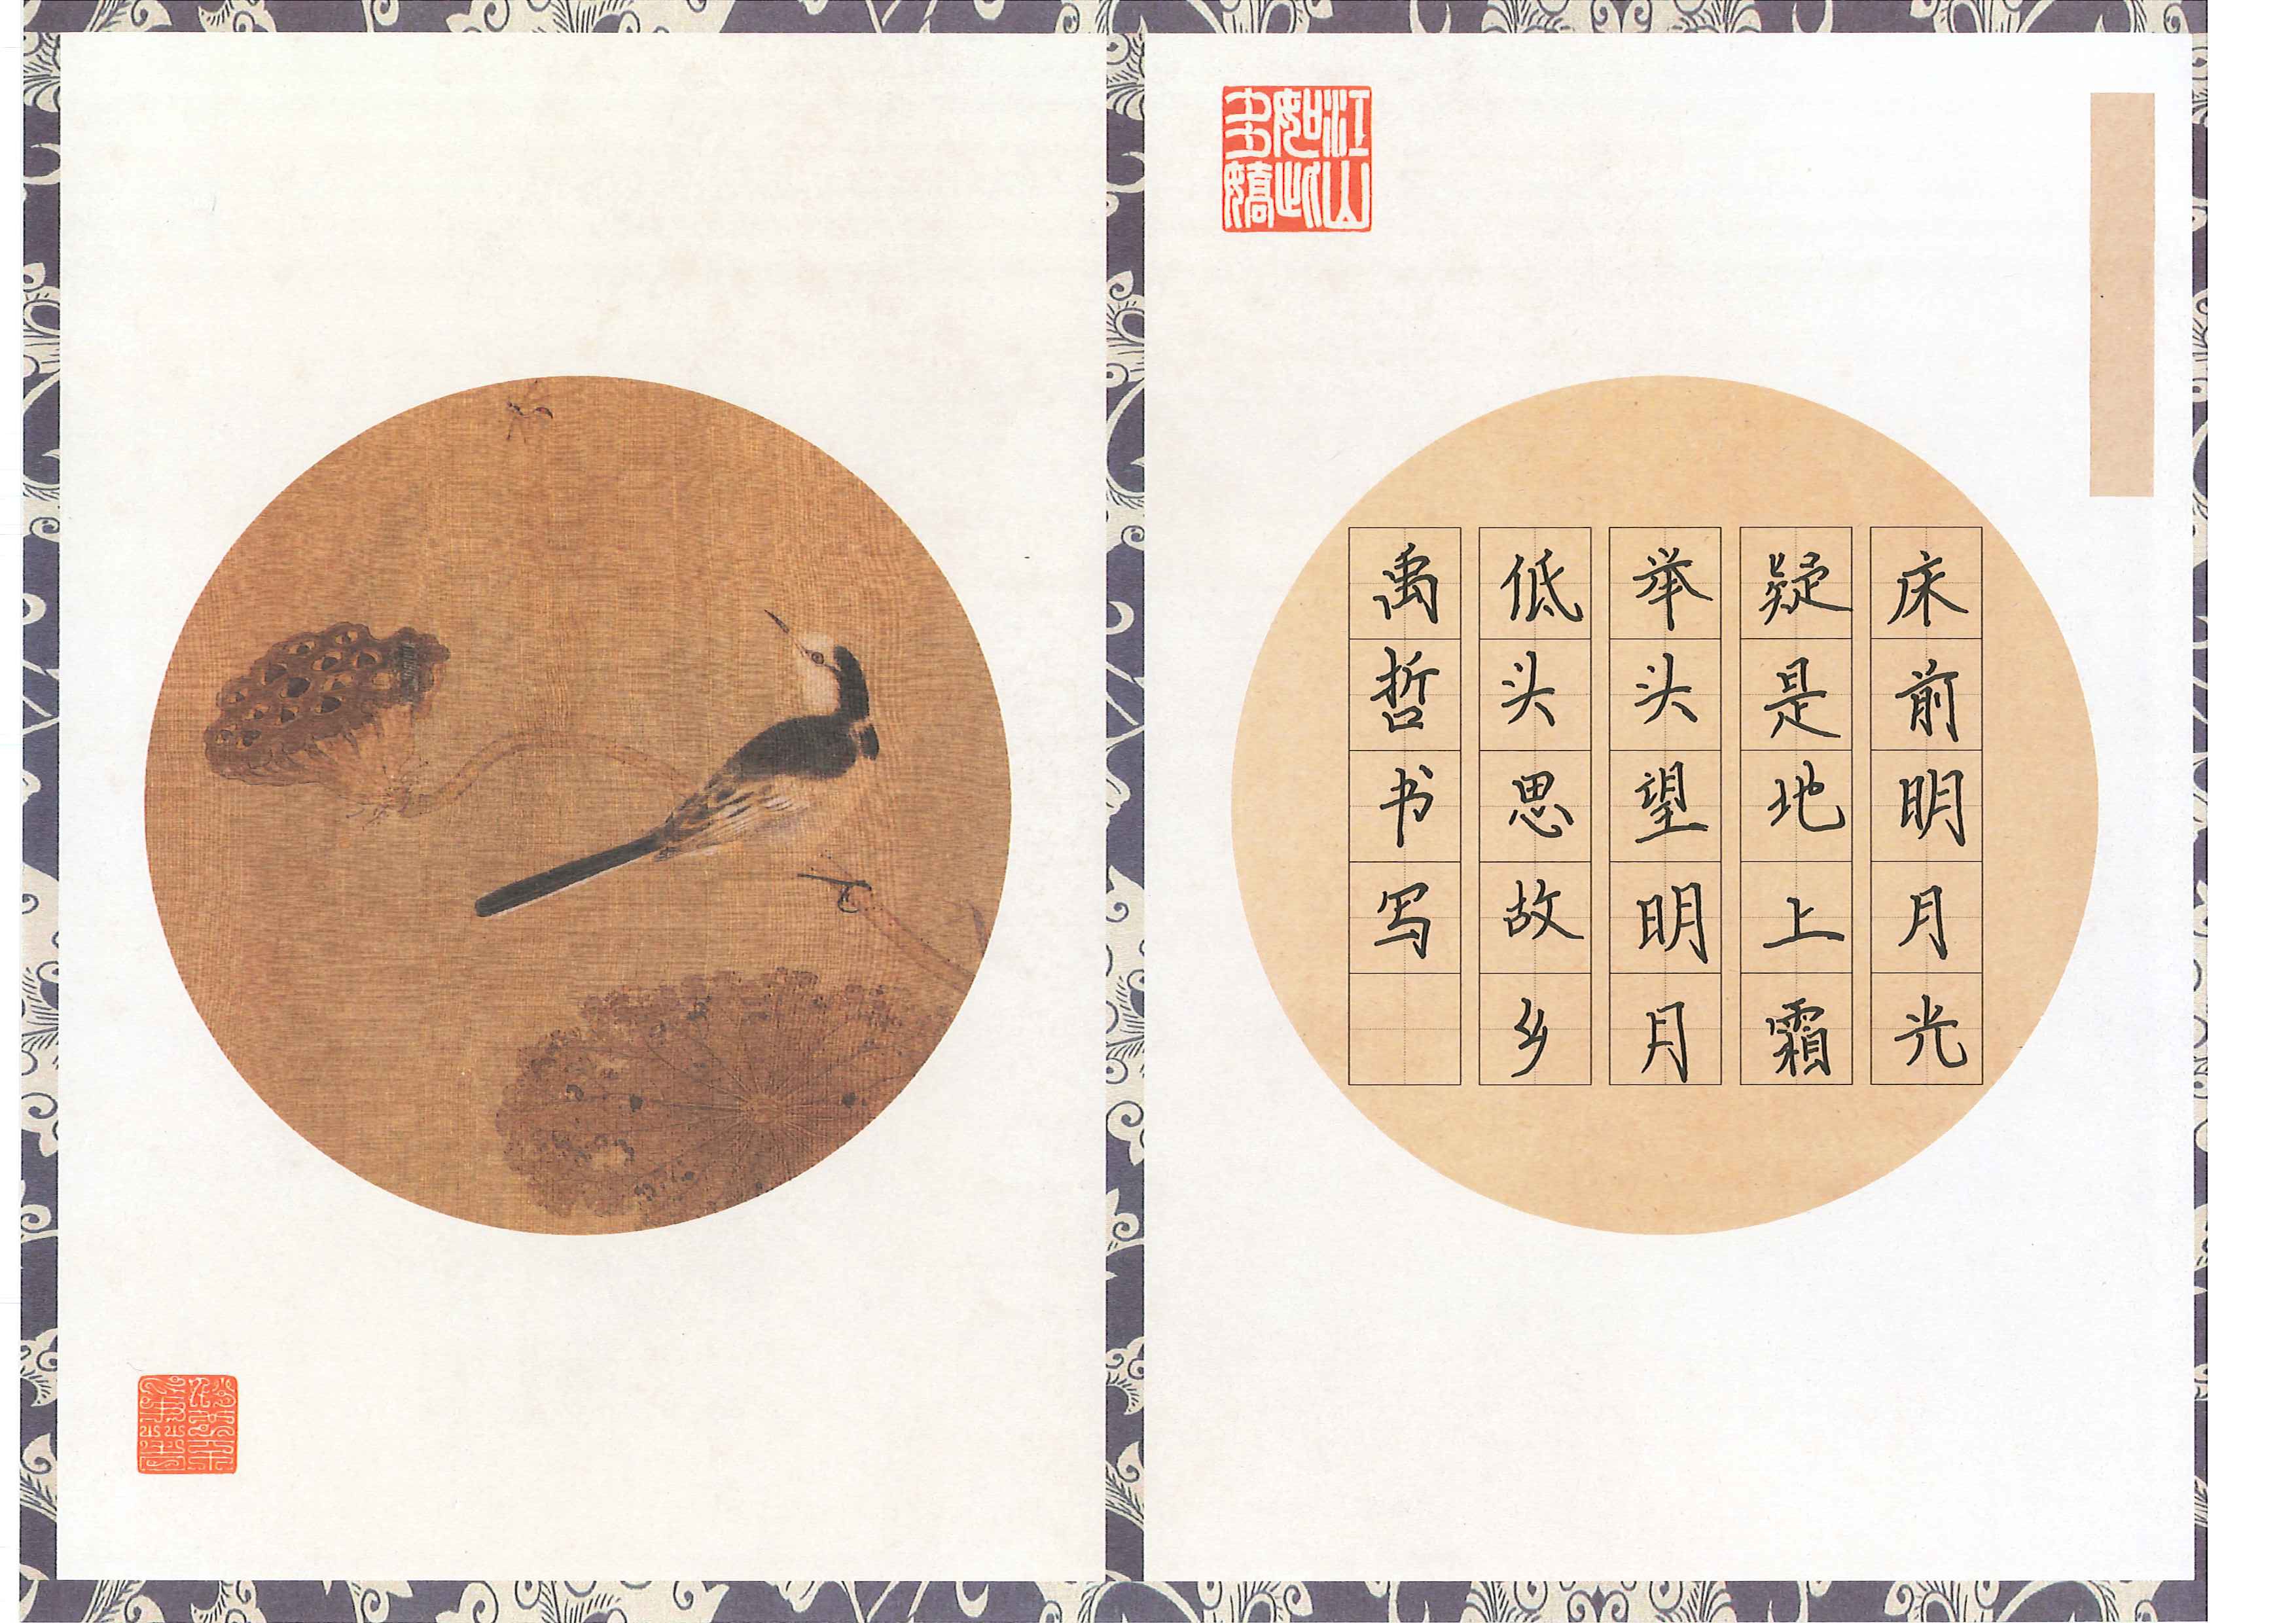 江山如此多娇
床前明月光
疑是地上霜
举头望明月
低头思故乡
禹哲书写